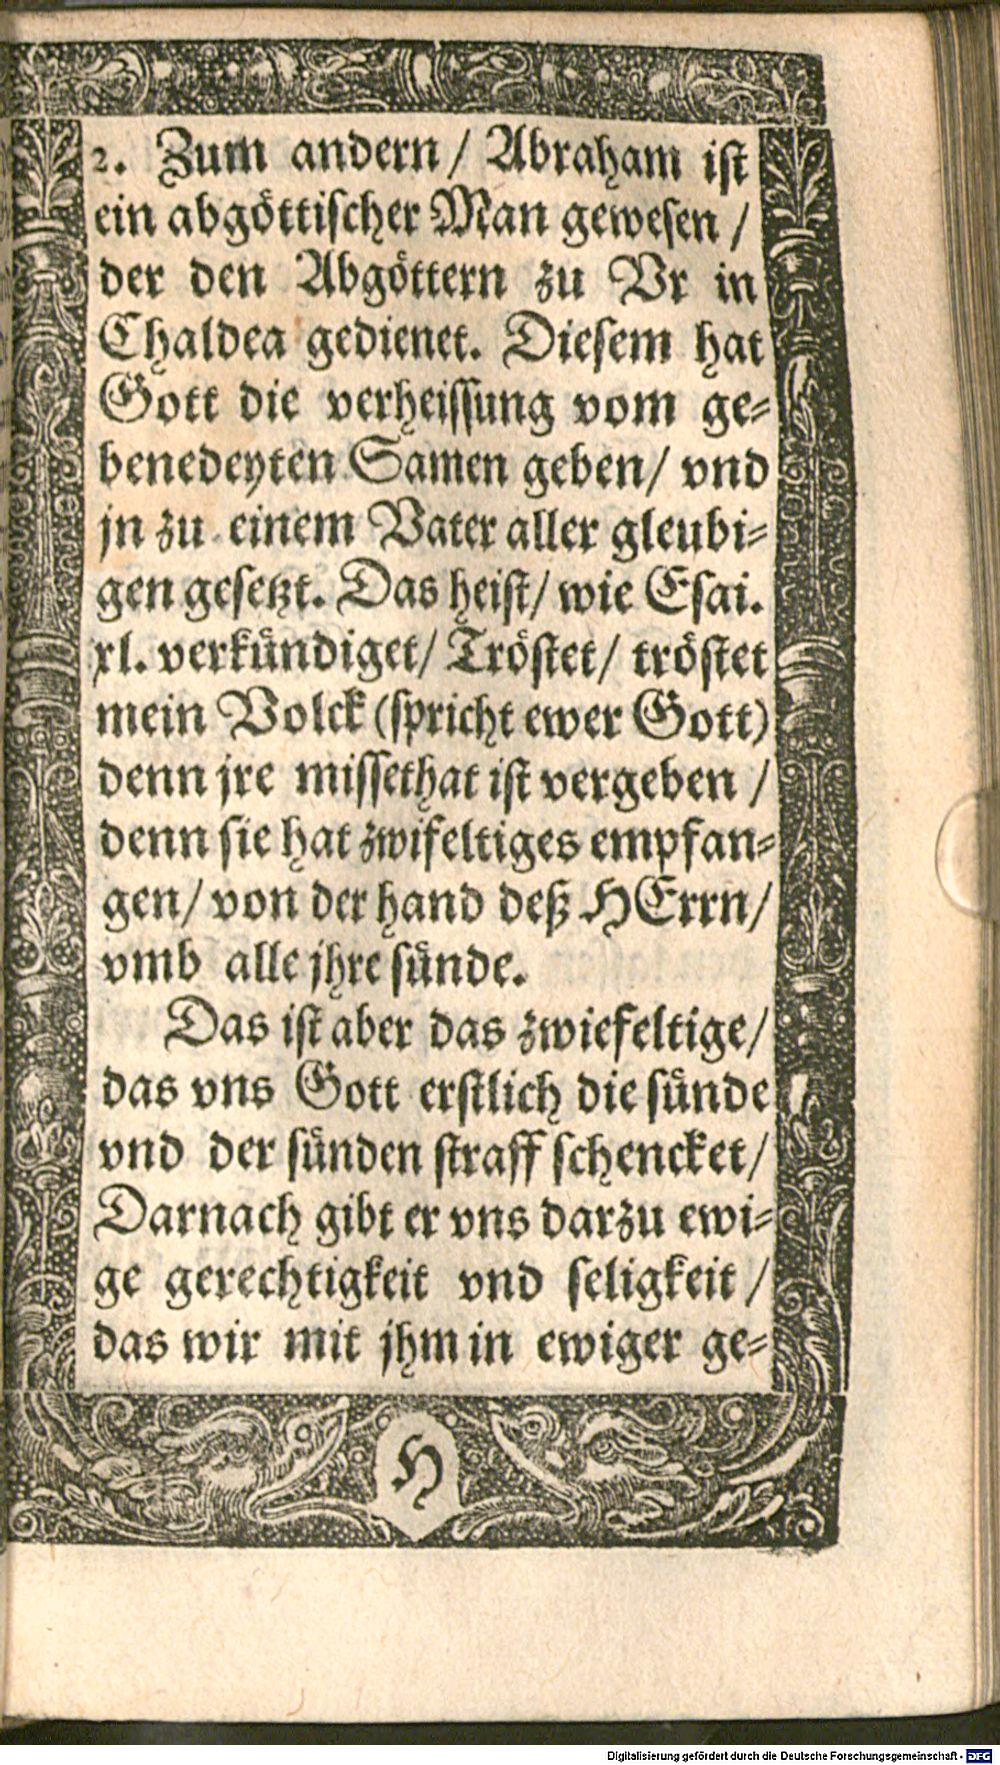 2. Zum andern / Abraham ist
ein abgöttischer Man gewesen /
der den Abgöttern zu Vr in
Chaldea gedienet. Diesem hat
Gott die verheissung vom ge-
benedeyten Samen geben / vnd
jn zu einem Vater aller gleubi-
gen gesetzt. Das heist / wie Esai.
xl. verkündiget / Tröstet / tröstet
mein Volck (spricht ewer Gott)
denn jre missethat ist vergeben /
denn sie hat zwifeltiges empfan-
gen / von der hand deß HErrn /
vmb alle jhre sünde.
Das ist aber das zwiefeltige /
das vns Gott erstlich die sünde
vnd der sünden straff schencket /
Darnach gibt er vns darzu ewi-
ge gerechtigkeit vnd seligkeit /
das wir mit jhm in ewiger ge-
H
Digitalisierung gefördert durch die Deutsche Forschungsgemeinschaft - DFG